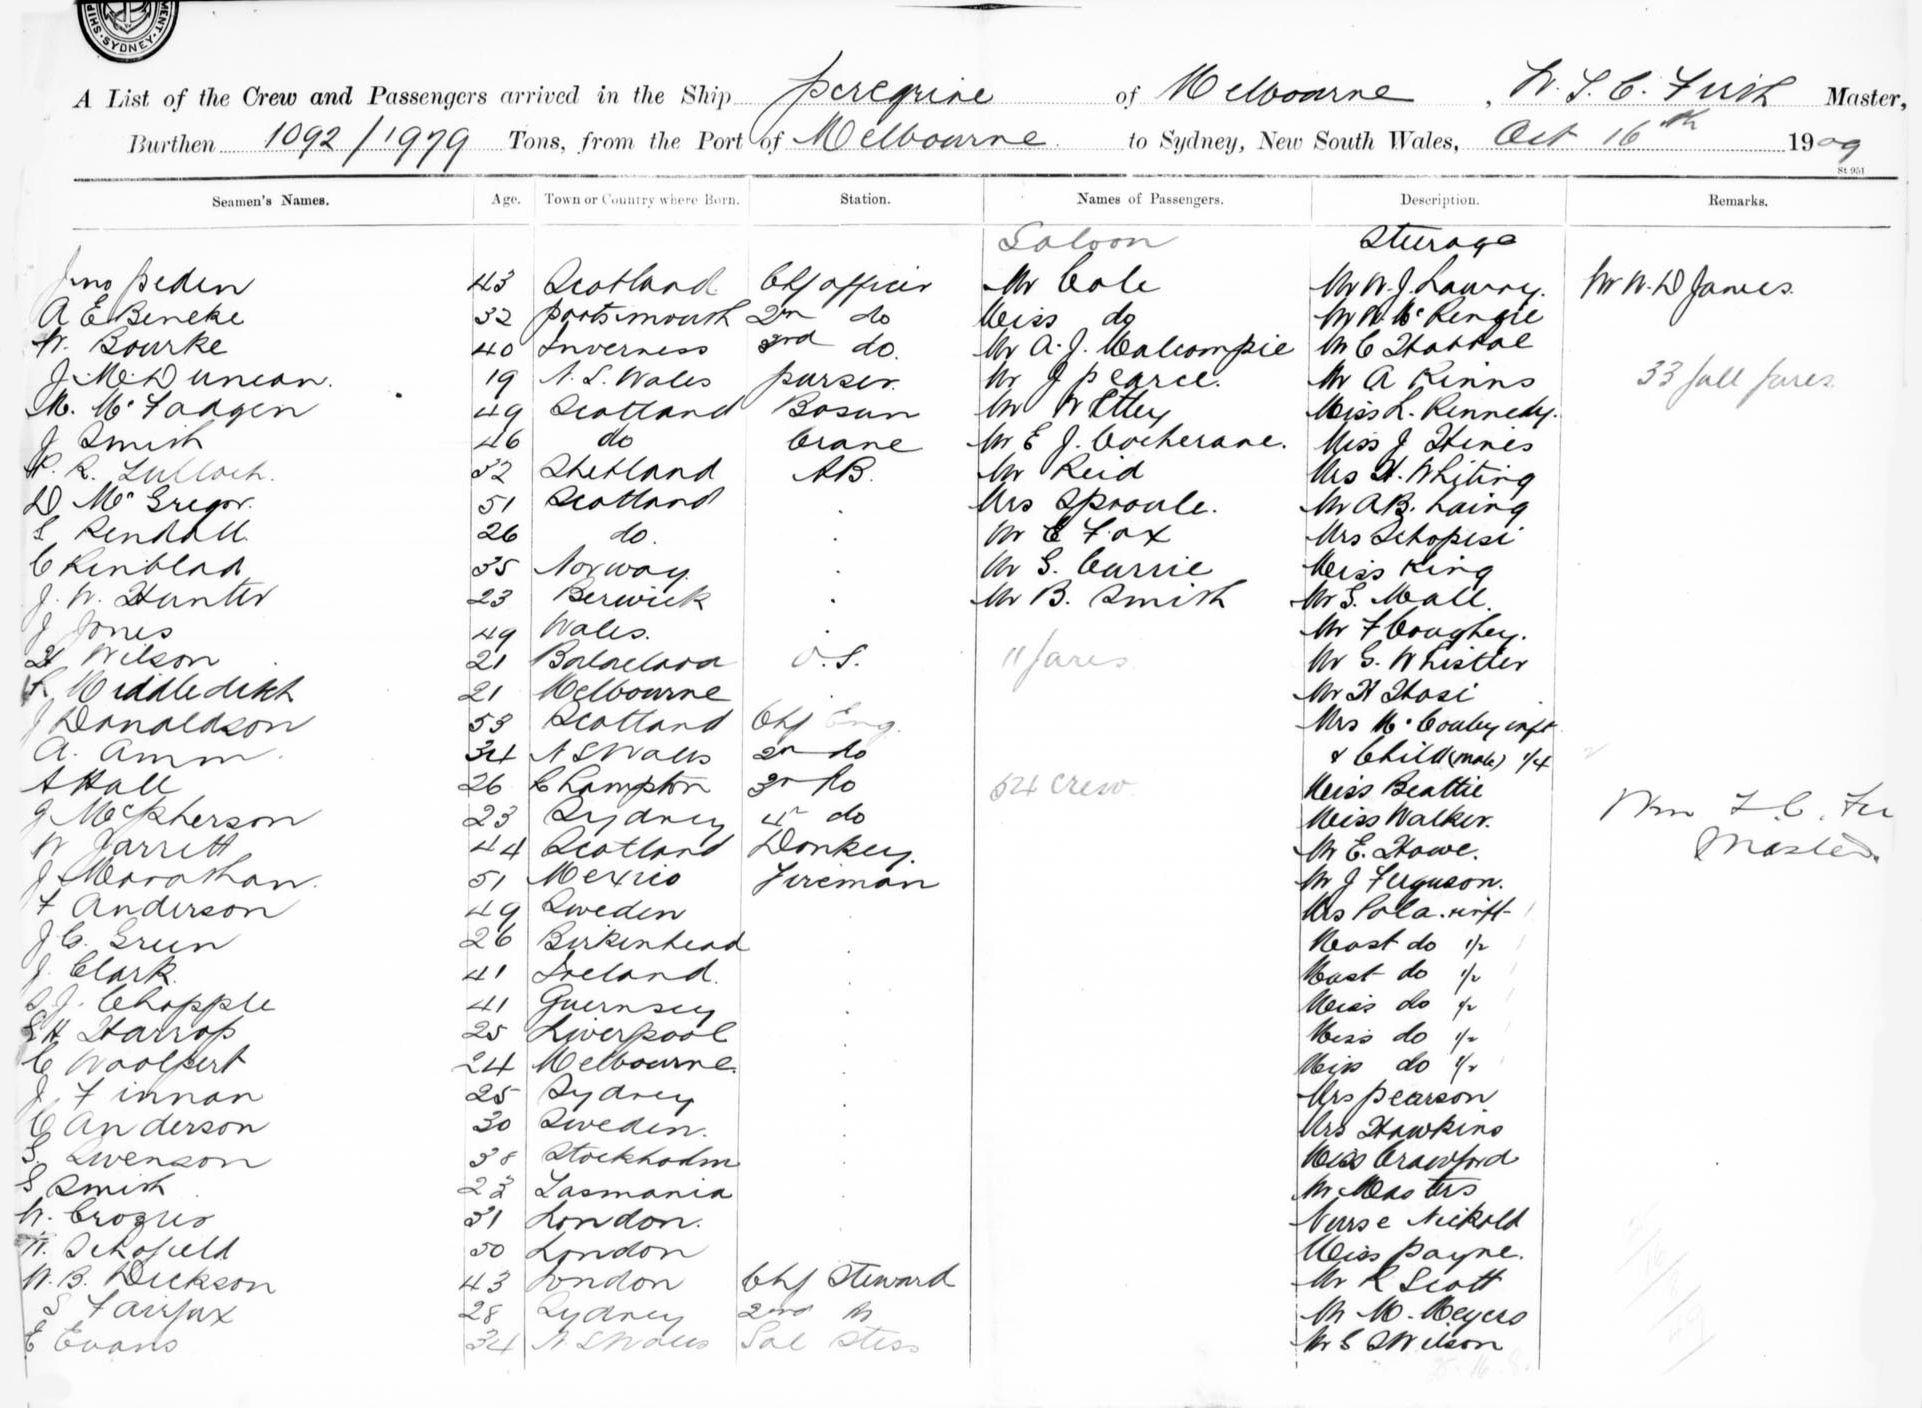 SHIP MENT. SYDNEY.
A List of the Crew and Passengers arrived in the Ship Peregrine of Melbourne, W. T. C. Master,
Burthen 1092/1979 Tons, from the Port of Melbourne to Sydney, New South Wales, Oct 16th 1909
St 951
Seamen's Names. Age. Town or Country where Born. Station. Names of Passengers. Description. Remarks.
Saloon Sturage
Jno Peden 43 Scotland Chf officer Mr Cole Mr W. J. Lawry. Mr W. D James.
A E Beneke 32 Portsmouth 2n do Miss do Mr W. McKenzie
W. Bourke 40 Inverness 3rd do. Mr A. J. Malcompie Mr C
J. M. Duncan. 19 N. S. Wales purser. Mr J Pearce. Mr A Kinns 33 full fares
M. McFadgen 49 Scotland Bosun Mr W Miss L. Kennedy.
J Smith 46 do Crane Mr E J. Cocherane. Miss J Hines
R. Tulloch. 32 Shetland AB. Mr Reid Mrs H. Whiting
D McGregor. 51 Scotland Mrs Sproule. Mr A B. Laing
S Rendall. 26 do. Mr E Fox Mrs Schopisi
C Renblad 35 Norway. Mr G. Currie Miss King
J. W. Hunter 23 Berwick Mr B. Smith Mr G. Mall.
J Jones 49 Wales. Mr F Coughey.
H Wilson 21 Balaclava O.S. 11 fares Mr G. Whistler
Middleditch 21 Melbourne Mr H Hosi
J Donaldson 53 Scotland Chf Eng. Mrs McCouley inft
A. Amm. 34 N S Wales 2n do & Child (male) 1/4
A Hall 26 2n do 54 crew. Miss Beattie
J McPherson 23 Sydney 4r do Miss Walker. Wm T. C.
W Jarrett 44 Scotland Donkey. Mr E. Howe. Master.
J Marathan. 51 Mexico Fireman Mr J Ferguson.
F Anderson 49 Sweden Mrs Pola. inft
J. C. Green 26 Birkenhead Mast do 1/2
J. Clark. 41 Ireland. Mast do 1/2
J. Chapple 41 Guernsey Miss do 1/2
H Harrop 25 Liverpool Miss do 1/2
C Woolpert 24 Melbourne. Miss do 1/2
J. Finnan 25 Sydney Mrs Pearson
C Anderson 30 Sweden. Mrs Hawkins
S. Swenson 38 Stockholm Miss Crawford
S Smith 23 Tasmania Mr Masters
W. Crozier 31 London. Nurse Nickold
W. Schofield 50 London Miss Payne.
W. B. Dickson 43 London Chf Steward Mr R Scott
S Fairfax 28 Sydney 2nd Mr M. Meyers
E Evans 34 N S Wales Sal Stess Mr S Wilson